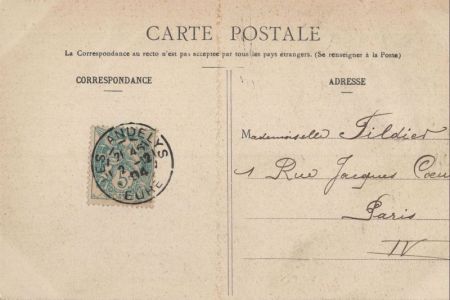 CARTE POSTALE
La Correspondance au recto n'est pas acceptée par tous les pays étrangers. (Se renseigner à la Poste)
CORRESPONDANCE
ADRESSE
LES ANDELYS
EURE
Mademoiselle Tildier
1 Rue Jacques Cœur
Paris
IV